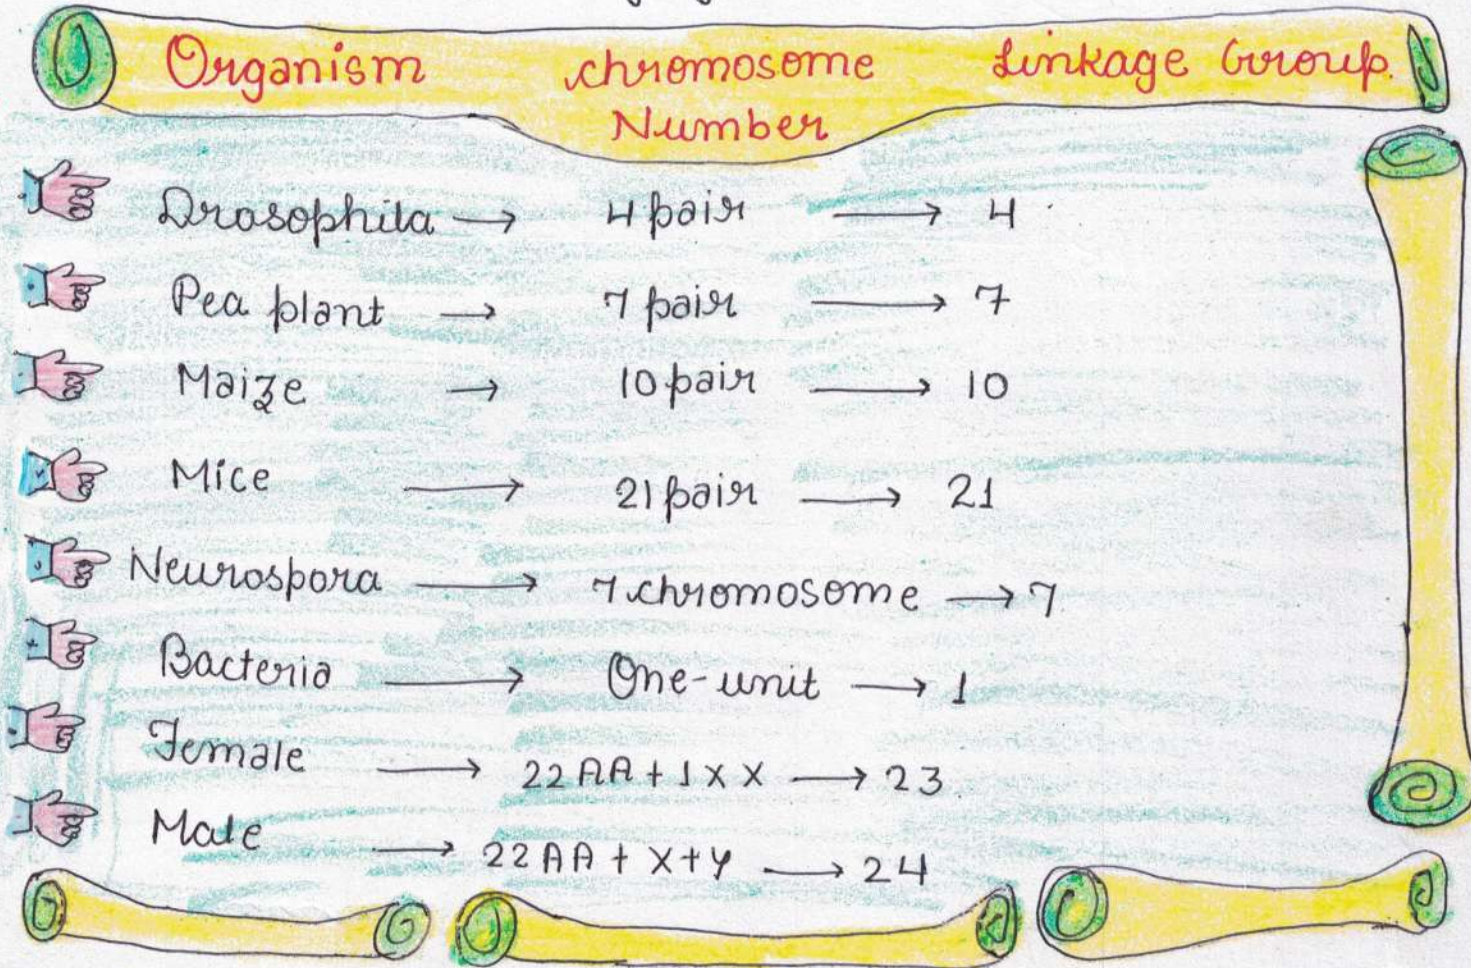 Organism chromosome Linkage Group.
Number
Drosophila → 4 pair → 4
Pea plant → 7 pair → 7
Maize → 10 pair → 10
Mice → 21 pair → 21
Neurospora → 7 chromosome → 7
Bacteria → One-unit → 1
Female → 22AA + 1XX → 23
Male → 22AA + X+Y → 24